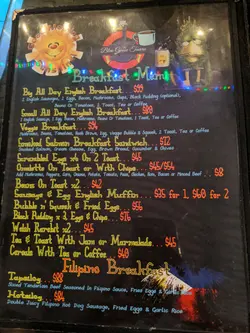 Breakfast Menu
Big All Day English Breakfast.. $95
2 English Sausages, 2 Eggs, Bacon, Mushrooms, Chips, Black Pudding (optional),
Beans Or Tomatoes, 2 Toast, Tea or Coffee
Small All Day English Breakfast... $80
1 English Sausage, 1 Egg, Bacon, Mushrooms Or Tomatoes, 1 Toast, Tea or Coffee
Veggie Breakfast... $84
Mushrooms, Beans, Tomatoes, Hash Brown, Egg, Veggie Bubble & Squeak, 2 Toast, Tea or Coffee
Smoked Salmon Breakfast Sandwich... $72
Smoked Salmon, Cream Cheese, Egg, Brown Bread, Cucumber & Olives
Scrambled Eggs x4 On 2 Toast... $45
Omelette On Toast or With Chips... $45/$54
Beans On Toast x2.. $42
Sausage & Egg English Muffin... $35 for 1, $60 for 2
Bubble n' Squeak & Fried Eggs... $55
Black Pudding x 3 Eggs & Chips... $76
Welsh Rarebit x2... $45
Tea & Toast With Jam or Marmalade... $45
Cereals With Tea or Coffee.. $40
Filipino Breakfast
Tapsilog... $88
Sliced Tenderloin Beef Seasoned In Filipino Sauce, Fried Eggs & Garlic Rice
Hotsilog... $84
Double Juicy Filipino Hot Dog Sausage, Fried Eggs & Garlic Rice